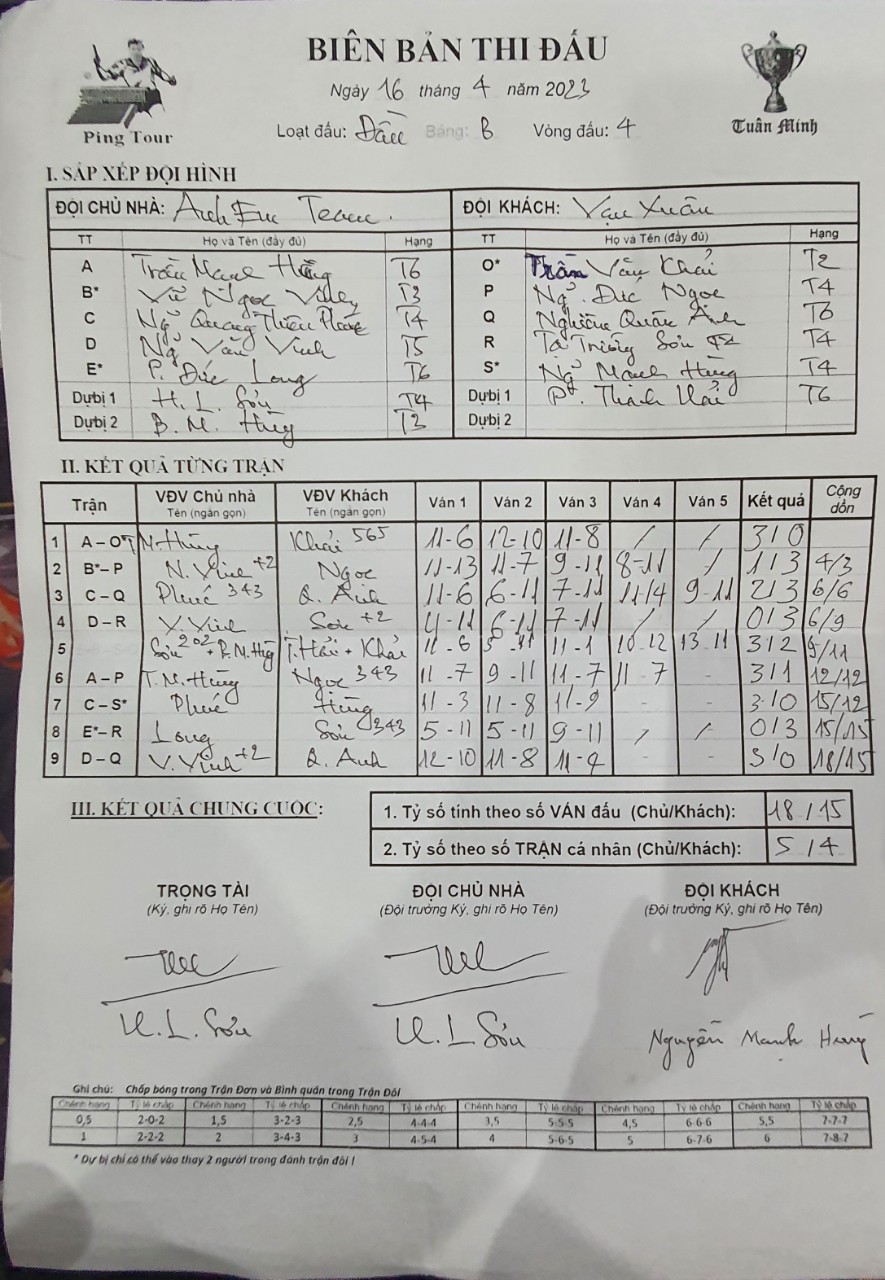 BIÊN BẢN THI ĐẤU
Ngày 16 tháng 4 năm 2023
Ping Tour
Loạt đấu: Đầu Bảng: B Vòng đấu: 4
Tuân Minh
I. SẮP XẾP ĐỘI HÌNH
ĐỘI CHỦ NHÀ: Anh Em Team. ĐỘI KHÁCH: Vạn Xuân
TT Họ và Tên (đầy đủ) Hạng TT Họ và Tên (đầy đủ) Hạng
A Trần Mạnh Hùng T6 O* Trần Văn Khải T2
B* Vũ Ngọc T3 P Ng. Đức Ngọc T4
C Ng Quang Thiên T4 Q Nghiêm Quốc Anh T6
D Ng Văn Vinh T5 R Tạ Trường Sơn T4 T4
E* P. Đức Long T6 S* Ng Mạnh Hùng T4
Dự bị 1 H. L. Sơn T4 Dự bị 1 P. Thanh Hải T6
Dự bị 2 B. M. Hùng T3 Dự bị 2
II. KẾT QUẢ TỪNG TRẬN
Trận VĐV Chủ nhà VĐV Khách Ván 1 Ván 2 Ván 3 Ván 4 Ván 5 Kết quả Cộng dồn
Tên (ngắn gọn) Tên (ngắn gọn)
1 A – O* T.M.Hùng Khải 565 11-6 12-10 11-8 / / 3/0
2 B* – P +2 Ngọc 11-13 11-7 9-11 8-11 / 1/3 4/3
3 C – Q Phúc 343 Q. Anh 11-6 6-11 7-11 11-4 9-11 2/3 6/6
4 D – R V. Vinh Sơn +2 4-11 6-11 7-11 / / 0/3 6/9
5 Sơn 202 + B.M.Hùng T.Hải + Khải 11-6 5-11 11-1 10-12 13-11 3/2 9/11
6 A – P T.M.Hùng Ngọc 343 11-7 9-11 11-7 11-7 - 3/1 12/12
7 C – S* Phúc Hùng 11-3 11-8 11-9 - - 3/0 15/12
8 E* – R Long Sơn 343 5-11 5-11 9-11 / / 0/3 15/15
9 D – Q V. Vinh +2 Q. Anh 12-10 11-8 11-9 - - 3/0 18/15
III. KẾT QUẢ CHUNG CUỘC:
1. Tỷ số tính theo số VÁN đấu (Chủ/Khách): 18/15
2. Tỷ số theo số TRẬN cá nhân (Chủ/Khách): 5/4
TRỌNG TÀI ĐỘI CHỦ NHÀ ĐỘI KHÁCH
(Ký, ghi rõ Họ Tên) (Đội trưởng Ký, ghi rõ Họ Tên) (Đội trưởng Ký, ghi rõ Họ Tên)
H. L. Sơn H. L. Sơn Nguyễn Mạnh Hùng
Ghi chú: Chấp bóng trong Trận Đơn và Bình quân trong Trận Đôi
Chênh hạng Tỷ lệ chấp Chênh hạng Tỷ lệ chấp Chênh hạng Tỷ lệ chấp Chênh hạng Tỷ lệ chấp Chênh hạng Tỷ lệ chấp Chênh hạng Tỷ lệ chấp
0,5 2-0-2 1,5 3-2-3 2,5 4-4-4 3,5 5-5-5 4,5 6-6-6 5,5 7-7-7
1 2-2-2 2 3-4-3 3 4-5-4 4 5-6-5 5 6-7-6 6 7-8-7
* Dự bị chỉ có thể vào thay 2 người trong đánh trận đôi !